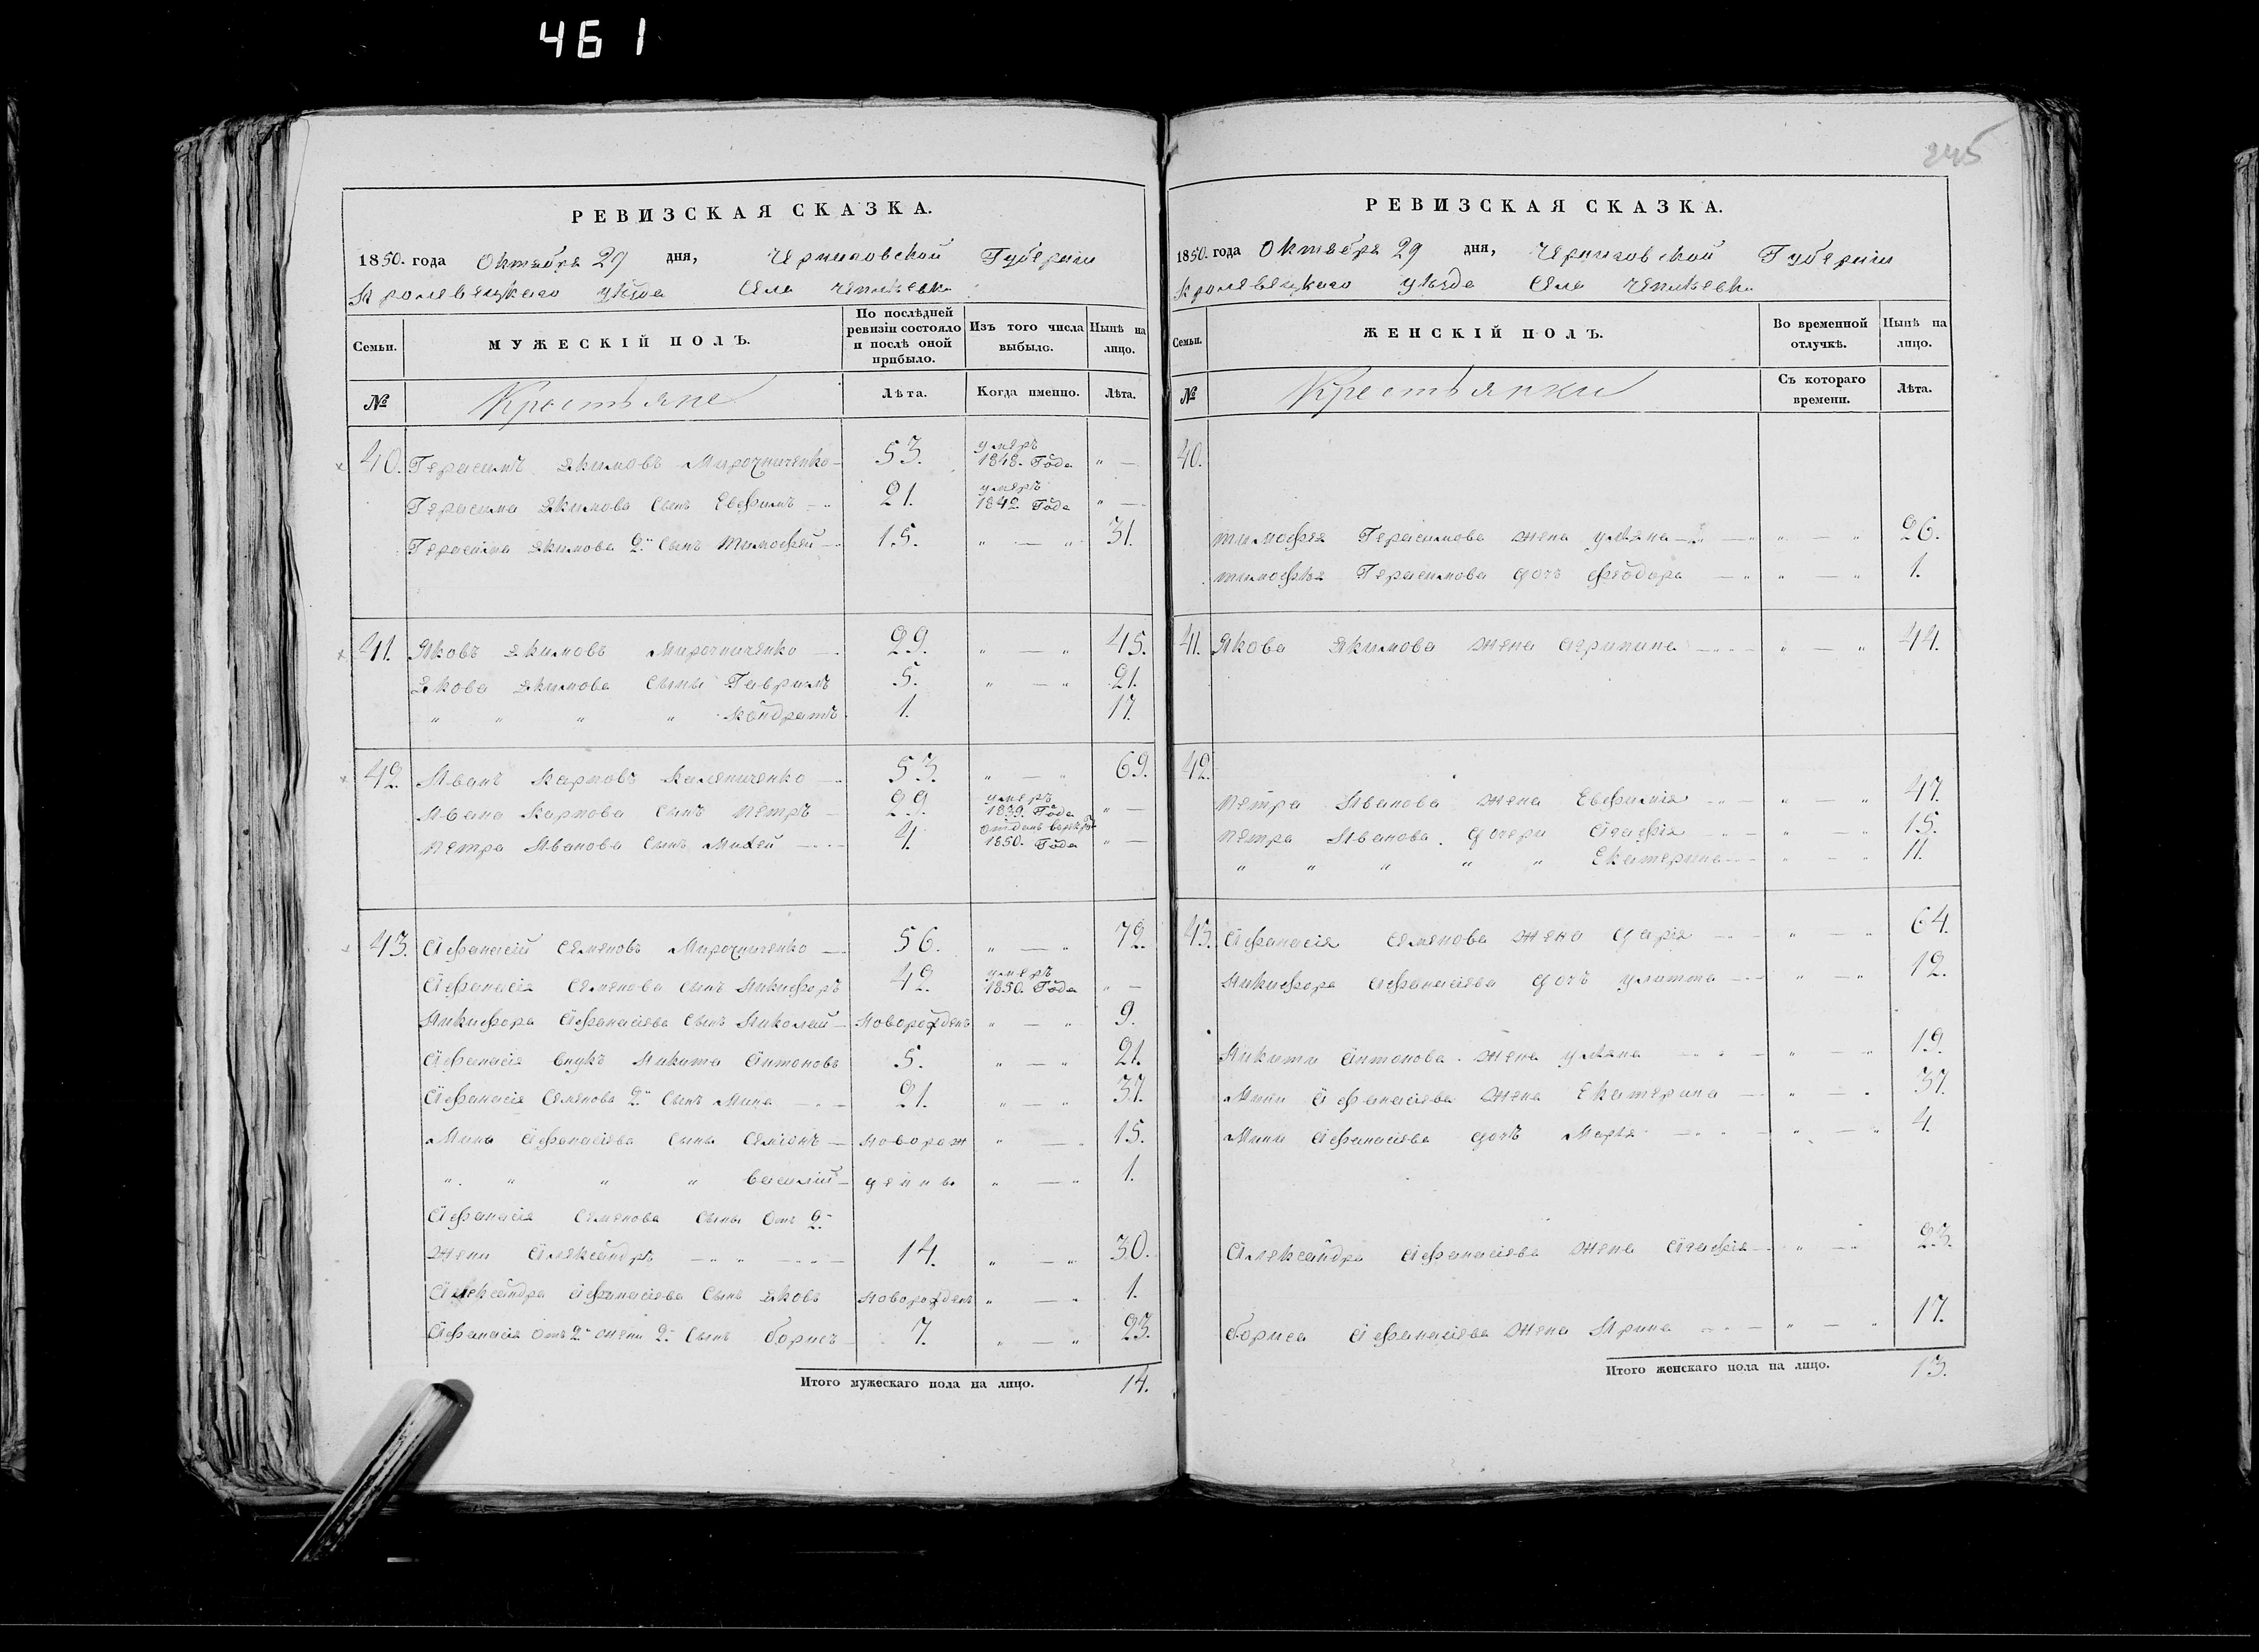 461
245
РЕВИЗСКАЯ СКАЗКА.
1850. года Октября 29 дня, Черниговской Губернии
Кролевецкаго уѣзда Села Чепліевки
Семьи. МУЖЕСКІЙ ПОЛЪ. По послѣдней ревизіи состояло и послѣ оной прибыло. Изъ того числа выбыло. Нынѣ на лицо.
№ Крестьяне Лѣта. Когда именно. Лѣта.
40. Герасимъ Якимовъ Мирошниченко 53. умеръ 1848. Года " —
Герасима Якимова сынъ Евфимъ 21. умеръ 1842 Года " —
Герасима Якимова 2й сынъ тимофей 15. " — " 31.
41. Яковъ Якимовъ Мирошниченко 29. " — " 45.
Якова Якимова сыны Гаврилъ 5. " — " 21.
" " " " Кондратъ 1. 17.
42. Иванъ Карповъ Калениченко 53. " — " 69.
Ивана Карпова сынъ петръ 29. умеръ 1839. Года " —
петра Иванова сынъ Михей 4. отданъ 1850. Года " —
43. Афанасій Семеновъ Мирошниченко 56. " — " 72.
Афанасія Семенова сынъ Никифоръ 42. умеръ 1850. Года " —
Никифора Афанасіева сынъ Николай Новорожденъ " — " 9.
Афанасія внукъ Никита Антоновъ 5. " — " 21.
Афанасія Семенова 2й сынъ Мина 21. " — " 37.
Мина Афанасіева сыны Семіонъ Новорож " — " 15.
" " " " василій денны " — " 1.
Афанасія Семенова сыны отъ 2й
жены Александръ 14. " — " 30.
Александра Афанасіева сынъ Яковъ Новорожденъ " — " 1.
Афанасія отъ 2й жены 2й сынъ борисъ 7. " — " 23.
Итого мужескаго пола на лицо. 14.
РЕВИЗСКАЯ СКАЗКА.
1850. года Октября 29 дня, Черниговской Губернии
Кролевецкаго уѣзда Села Чепліевки
Семьи. ЖЕНСКІЙ ПОЛЪ. Во временной отлучкѣ. Нынѣ на лицо.
№ Крестьянки Съ котораго времени. Лѣта.
40.
тимофея Герасимова жена ульяна " — " 26.
тимофея Герасимова дочь феодора " — " 1.
41. Якова Якимова жена агрипина " — " 44.
42.
петра Иванова жена Евфимія " — " 47.
петра Иванова дочери Агафія " — " 15.
" " " " " Екатерина " — " 11.
43. Афанасія Семенова жена дарія " — " 64.
Никифора Афанасіева дочь улитта " — " 12.
Никиты Антонова жена ульяна " — " 19.
Мины Афанасіева жена Екатерина " — " 37.
Мины Афанасіева дочь Марья " — " 4.
Александра Афанасіева жена Агафія " — " 23.
бориса Афанасіева жена Ирина " — " 17.
Итого женскаго пола на лицо. 13.